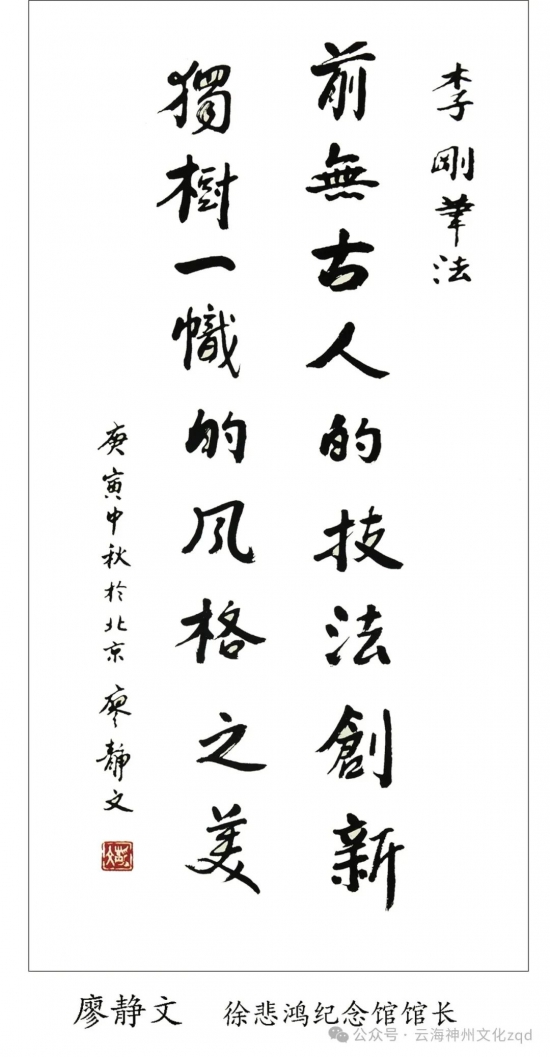 李剛筆法
前無古人的技法創新
獨樹一幟的风格之美
庚寅中秋於北京 廖靜文
廖静文 徐悲鸿纪念馆馆长
公众号·云海神州文化zqd